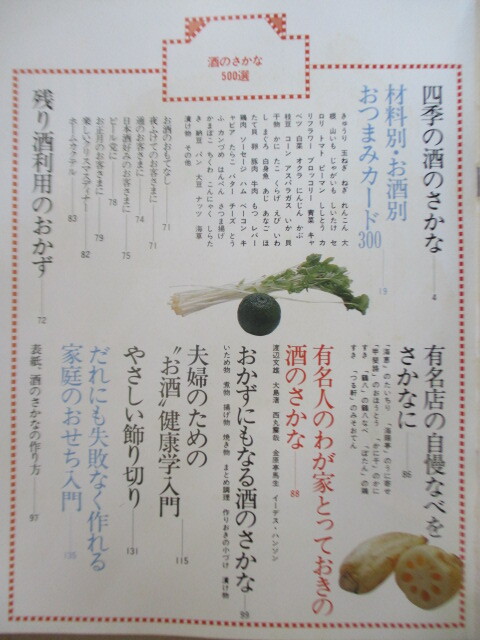 酒のさかな
500選
四季の酒のさかな
4
材料別・お酒別
おつまみカード300
19
きゅうり 玉ねぎ ねぎ れんこん 大
根 山いも じゃがいも しいたけ セ
ロリ トマト ピーマン ししとう カ
リフラワー ブロッコリー 青菜 キャ
ベツ 白菜 オクラ にんじん かぶ
枝豆 コーン アスパラガス いか 貝
干物 かに たこ くらげ えび いわ
し まぐろ 白身魚 あじ あなご ほ
たて貝 卵 豚肉 牛肉 もつ レバー
鶏肉 ソーセージ ハム ベーコン キ
ャビア たらこ バター チーズ とう
ふ カンづめ はんぺん さつま揚げ
かまぼこ ちくわ こんにゃく しらた
き 納豆 パン 大豆 ナッツ 海草
漬け物 その他
お酒のおもてなし
71
夜ふけてのお客さまに
71
週のお客さまに
74
日本酒好みのお客さまに
75
ビール党に
78
お正月のお客さまに
79
楽しいクリスマスディナー
82
ホームカクテル
83
残り酒利用のおかず
72
有名店の自慢なべを
さかなに
86
「満恵」のたいちり 「海陽亭」のうに寄せ
「甲斐路」のおほうとう 「かに平」のかに
すき 「鶴八」の鶴八なべ 「ぼたん」の鶏
すき 「つる軒」のみそおでん
有名人のわが家とっておきの
酒のさかな
88
渡辺文雄 大島渚 西丸震哉 金原亭馬生 イーデス・ハンソン
おかずにもなる酒のさかな
99
いため物 煮物 揚げ物 焼き物 まとめ調理 作りおきの小づけ 漬け物
夫婦のための
“お酒”健康学入門
115
やさしい飾り切り
131
だれにも失敗なく作れる
家庭のおせち入門
135
表紙、酒のさかなの作り方
97